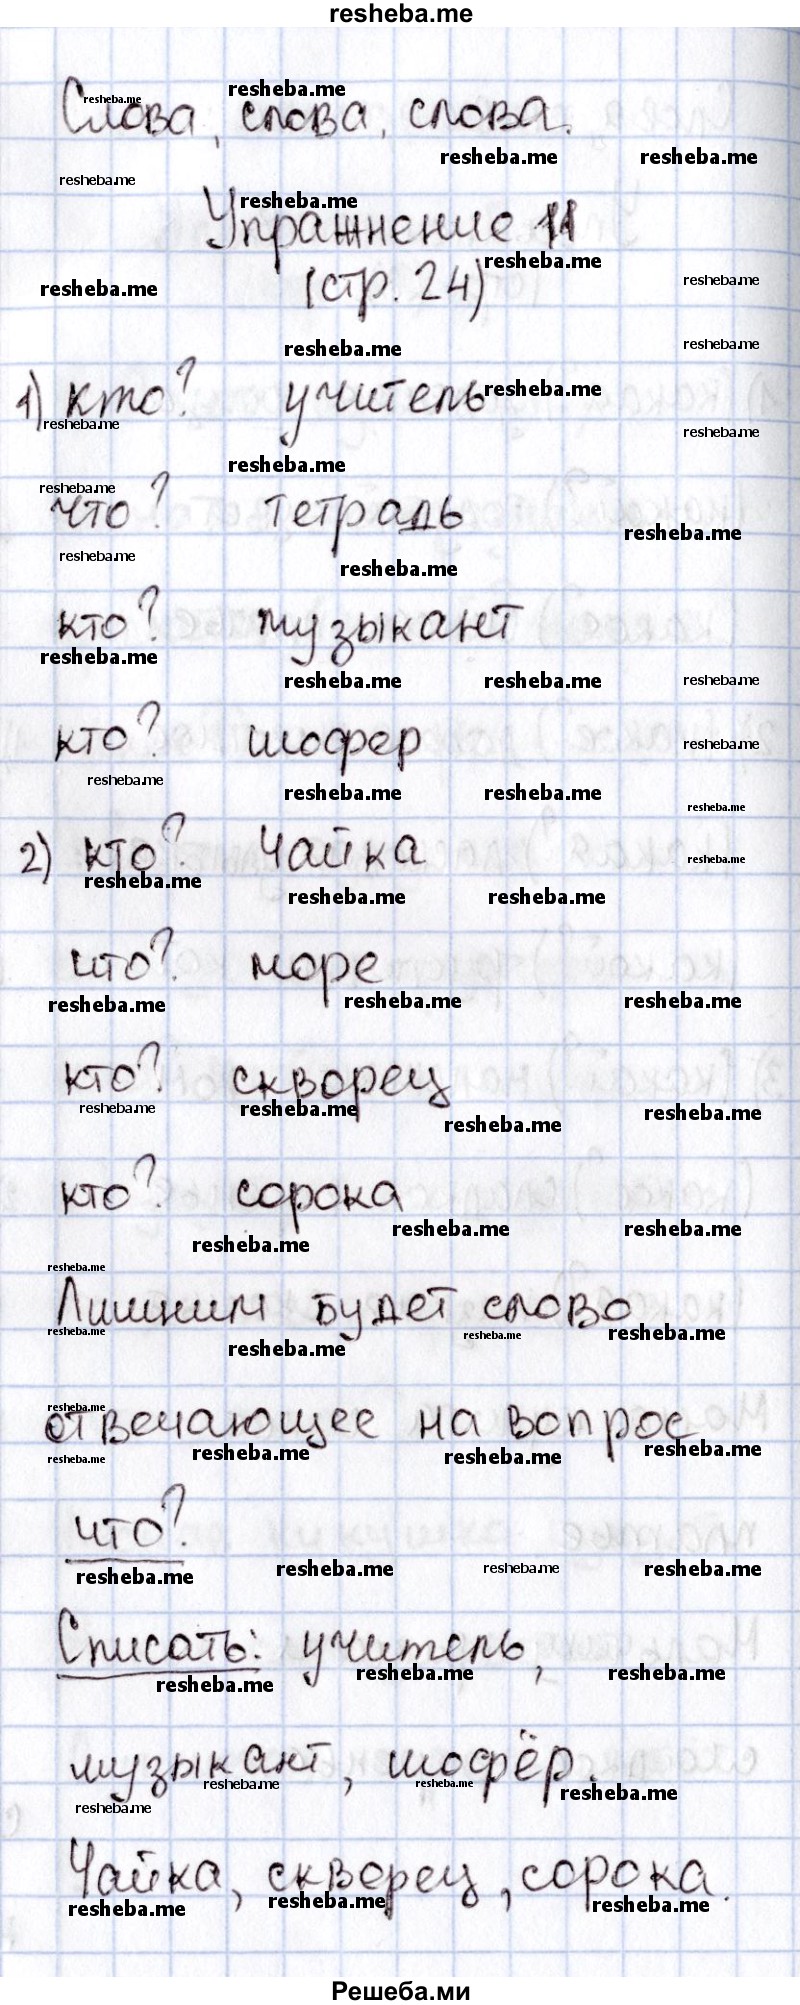 resheba.me
Слова, слова, слова.
Упражнение 11
(стр. 24)
1) кто? учитель
что? тетрадь
кто? музыкант
кто? шофер
2) кто? чайка
что? море
кто? скворец
кто? сорока
Лишним будет слово
отвечающее на вопрос
что?
Списать: учитель,
музыкант, шофёр.
Чайка, скворец, сорока.
Решеба.ми